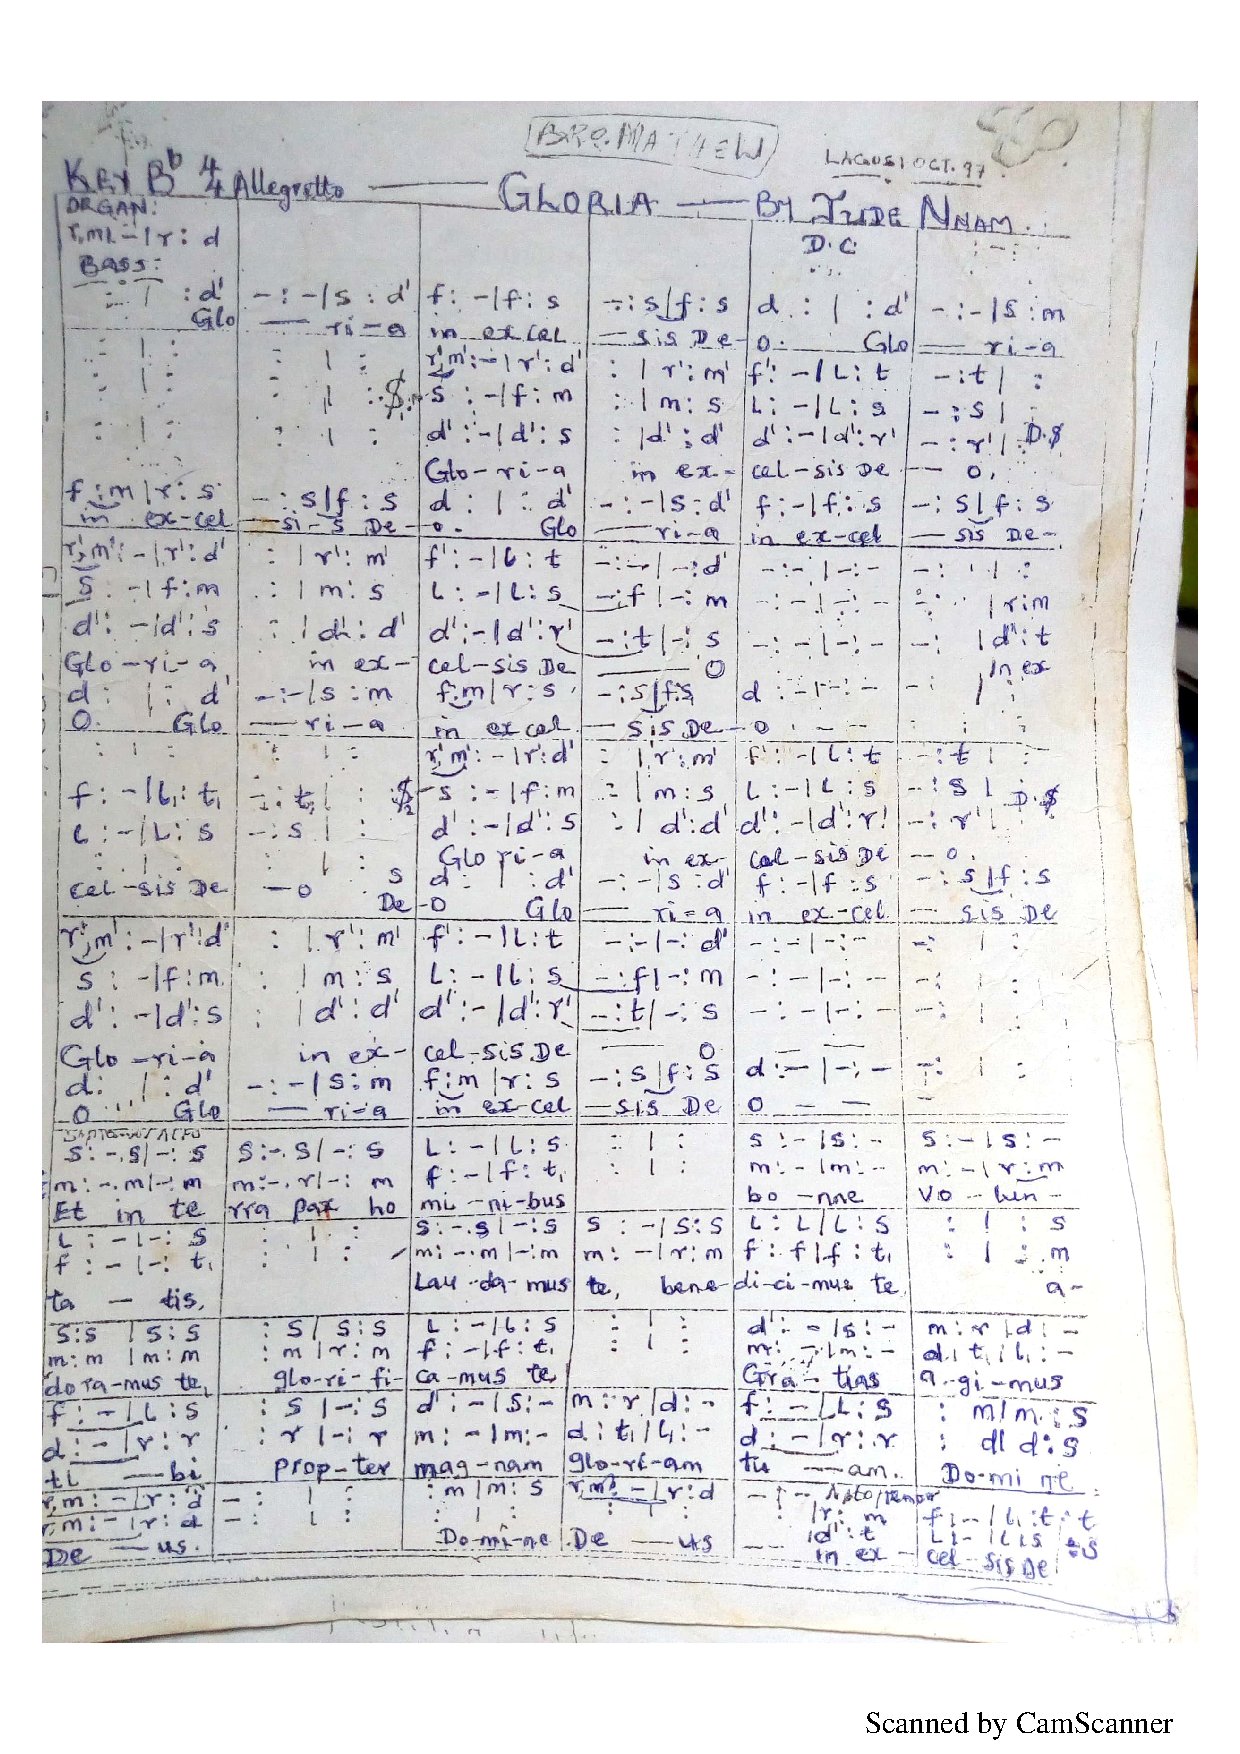 BRO. MATHEW
LAGOS OCT. 97
KEY Bb 4/4 Allegretto — GLORIA — BY JUDE NNAM.
ORGAN:
r,m: - | r : d
D.C
BASS:
: | : d' - : - | s : d' f : - | f : s - : s | f : s d : | : d' - : - | s : m
Glo — ri - a in ex cel — sis De - o. Glo — ri - a
: | : : | : r',m' : - | r' : d' : | r' : m' f' : - | l : t - : t | :
: | : : | : S. s : - | f : m : | m : s l : - | l : s - : s |
: | : : | : d' : - | d' : s : | d' : d' d' : - | d' : r' - : r' | D.S
Glo - ri - a in ex - cel - sis De — o.
f : m | r : s - : s | f : s d : | : d' - : - | s : d' f : - | f : s - : s | f : s
in ex - cel — si - s De - o. Glo — ri - a in ex - cel — sis De -
r',m' : - | r' : d' : | r' : m' f' : - | l : t - : - | - : d' - : - | - : - - : | :
s : - | f : m : | m : s l : - | l : s - : f | - : m - : - | - : - - : | r : m
d' : - | d' : s : | d' : d' d' : - | d' : r' - : t | - : s - : - | - : - - : | d' : t
Glo - ri - a in ex - cel - sis De — o in ex
d : | : d' - : - | s : m f : m | r : s - : s | f : s d : - | - : - - : | :
o. Glo — ri - a in ex cel — sis De - o - - -
: | : : | : r',m' : - | r' : d' : | r' : m' f' : - | l : t - : t | :
f : - | l, : t, - : t, | : s : - | f : m : | m : s l : - | l : s - : s | D.S
l : - | l : s - : s | : d' : - | d' : s : | d' : d' d' : - | d' : r' - : r' |
Glo ri - a in ex - cel - sis De — o.
: | : : | : s d : | : d' - : - | s : d' f : - | f : s - : s | f : s
cel - sis De — o De - o Glo — ri - a in ex - cel — sis De
r',m' : - | r' : d' : | r' : m' f' : - | l : t - : - | - : d' - : - | - : - - : | :
s : - | f : m : | m : s l : - | l : s - : f | - : m - : - | - : - - : | :
d' : - | d' : s : | d' : d' d' : - | d' : r' - : t | - : s - : - | - : - - : | :
Glo - ri - a in ex - cel - sis De — o — —
d : | : d' - : - | s : m f : m | r : s - : s | f : s d : - | - : - - : | :
o Glo — ri - a in ex - cel — sis De o — — -
s : - . s | - : s s : - . s | - : s l : - | l : s : | : s : - | s : - s : - | s : -
m : - . m | - : m m : - . r | - : m f : - | f : t, : | : m : - | m : - m : - | r : m
Et in te rra pax ho mi - ni - bus bo - nae vo - lun -
l : - | - : s : | : s : - . s | - : s s : - | s : s l : l | l : s : | : s
f : - | - : t, : | : m : - . m | - : m m : - | r : m f : f | f : t, : | : m
ta — tis, Lau - da - mus te, bene - di - ci - mus te a -
s : s | s : s : s | s : s l : - | l : s : | : d' : - | s : - m : r | d : -
m : m | m : m : m | r : m f : - | f : t, : | : m : - | m : - d : t, | l, : -
do ra - mus te, glo - ri - fi - ca - mus te Gra - tias a - gi - mus
f : - | l : s : s | - : s d' : - | s : - m : r | d : - f : - | l : s : m | m : s
d : - | r : r : r | - : r m : - | m : - d : t, | l, : - d : - | r : r : d | d : s
ti — bi prop - ter mag - nam glo - ri - am tu — am. Do - mi ne
r,m : - | r : d - : | : : m | m : s r,m : - | r : d - : -
r,m : - | r : d - : | : : | : : | r : m f : - | l, : t, : t
| d' : t l : - | l : s : s
De — us. Do - mi - ne De — us — in ex - cel - sis De
Scanned by CamScanner